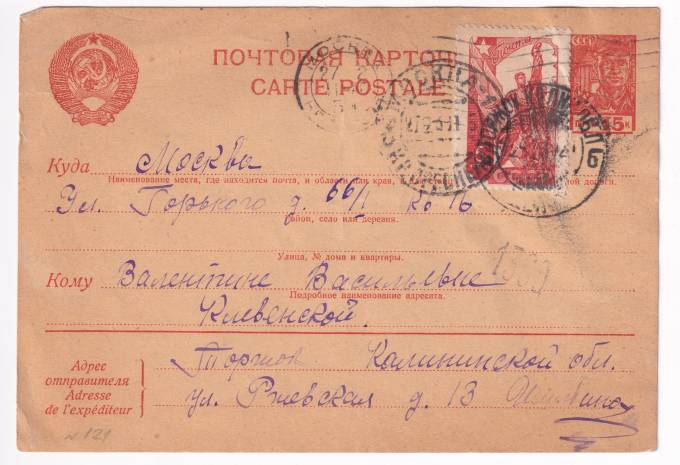 ПОЧТОВАЯ КАРТОЧ
CARTE POSTALE
СССР
15 К
Куда Москва
Наименование места, где находится почта, и области или края, дороги.
Ул. Горького д. 66/1 кв 16
Район, село или деревня.
Улица, № дома и квартиры.
Кому Валентине Васильевне
Подробное наименование адресата.
Киевенской.
Адрес
отправителя
Adresse
de l'expéditeur
Торжок Калининской обл.
ул. Ржевская д. 13
№ 121